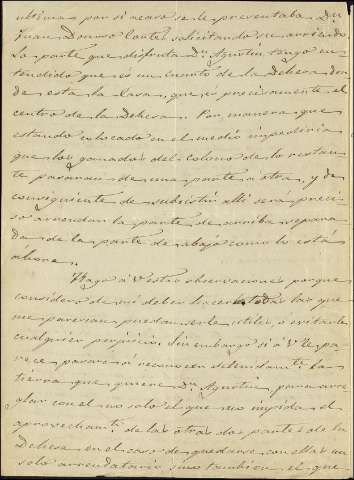 ultimas por si acaso se le presentaba Dn
Juan Donoso Cortes solicitando su arriendo
La parte que disfruta Dn Agustin tengo en-
tendido que es un cuarto de la Dehesa don-
de esta la casa, que es precisamente el
centro de la Dehesa. Por manera que
estando colocado en el medio impediria
que los ganados del Colono de lo restan-
te pasaran de una parte a otra, y de
consiguiente de subsistir alli sera preci-
so arrendar la parte de arriba separa-
da de la parte de abajo como lo está
ahora.
Hago á V estas observaciones porque
considero de mi deber hacerle todas las que
me parezcan puedan serle utiles ó evitarle
cualquier perjuicio. Sin embargo si á V le pa-
rece pasaré á reconocer detenidamte. La
tierra que quiere Dn Agustin para arre-
glar con el no solo el que no impida el
aprovechamto. de las otras dos partes de la
Dehesa en el caso de quedarse con ellas un
solo arrendatario, sino tambien el que